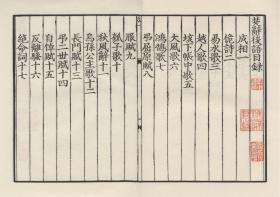 楚辭後語目録
成相一
佹詩二
易水歌三
越人歌四
垓下帳中歌五
大風歌六
鴻鵠歌七
弔屈原賦八
服賦九
瓠子歌十
秋風辭十一
烏孫公主歌十二
長門賦十三
弔二世賦十四
自悼賦十五
反離騷十六
絶命詞十七